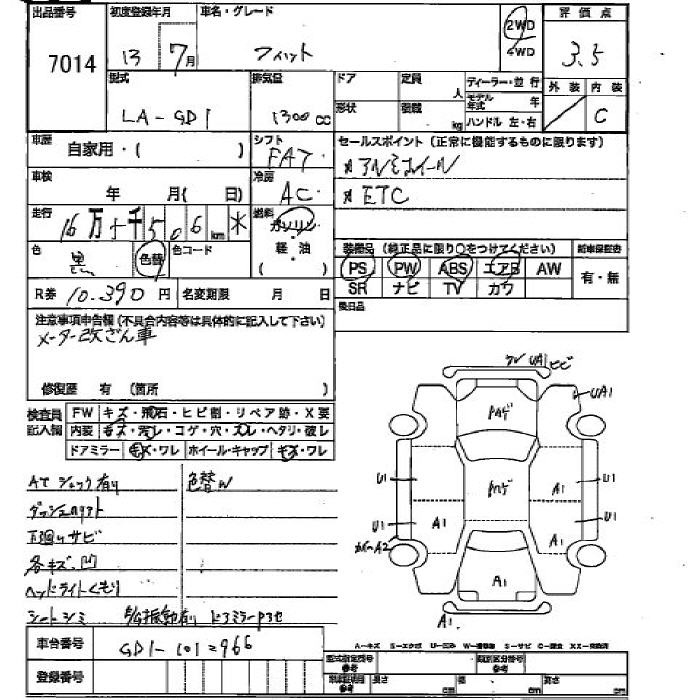 出品番号 初度登録年月 車名・グレード 評価点
7014 13 7月 フィット 2WD 4WD 3.5
型式 排気量 ドア 定員 人 ディーラー・並行 外装 内装
LA-GD1 1300cc 形状 積載 kg モデル年式 年 ハンドル 左・右 C
車歴 自家用・( ) シフト FAT セールスポイント(正常に機能するものに限ります)
アルミホイール
車検 年 月( 日) 冷房 AC ETC
走行 16万 千 5 0 6 km * 燃料 ガソリン・軽・油 ( )
色 黒 色替 色コード 装備品(純正品に限り○をつけてください) 新車保証書
PS PW ABS エアB AW 有・無
SR ナビ TV カワ
R券 10,390円 名変期限 月 日 後日品
注意事項申告欄(不具合内容等は具体的に記入して下さい)
メーター改ざん車
修復歴 有 (箇所 )
検査員記入欄 FW キズ・飛石・ヒビ割・リペア跡・X要
内装 キズ・汚レ・コゲ・穴・スレ・ヘタリ・破レ
ドアミラー キズ・ワレ ホイール・キャップ キズ・ワレ
ワレ UA1 ヒビ
UA1
ハゲ
U1 ハゲ A1 U1
U1 A1 A1 U1
A2
A1
A1
色替W
下廻りサビ
各キズ・凹
ヘッドライトくもり
シートシミ
A-キズ S-サビ
車台番号 GD1-1012966
登録番号
型式指定番号 参考 類別区分番号 参考
長さ cm 幅 cm 高さ cm